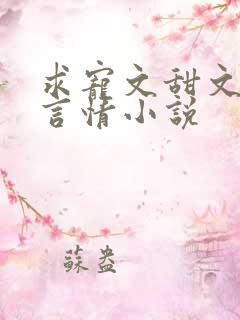 求寵文甜文
言情小説
蘇盎